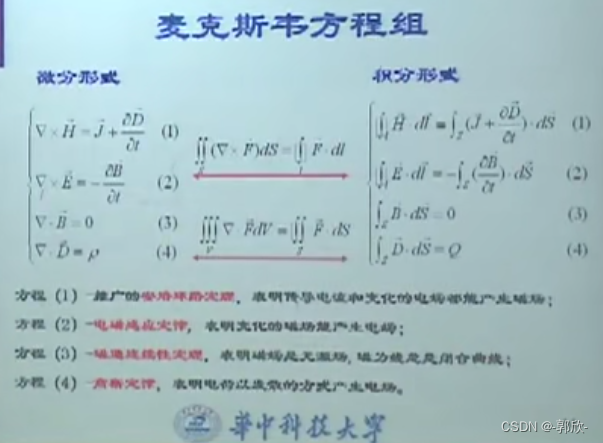 麦克斯韦方程组
微分形式
积分形式
∇ × H⃗ = J⃗ + ∂D⃗/∂t (1)
∇ × E⃗ = −∂B⃗/∂t (2)
∇ · B⃗ = 0 (3)
∇ · D⃗ = ρ (4)
∬_S (∇ × F⃗)dS = ∮_l F⃗ · dl
∭_V ∇ · F⃗dV = ∬_S F⃗ · dS
∮_l H⃗ · dl⃗ = ∫_S (J⃗ + ∂D⃗/∂t) · dS⃗ (1)
∮_l E⃗ · dl⃗ = −∫_S (∂B⃗/∂t) · dS⃗ (2)
∫_S B⃗ · dS⃗ = 0 (3)
∫_S D⃗ · dS⃗ = Q (4)
方程（1）–推广的安培环路定理，表明传导电流和变化的电场都能产生磁场；
方程（2）–电磁感应定律，表明变化的磁场能产生电场；
方程（3）–磁通连续性定理，表明磁场是无源场，磁力线总是闭合曲线；
方程（4）–高斯定律，表明电荷以发散的方式产生电场。
华中科技大学
CSDN @-郭欣-